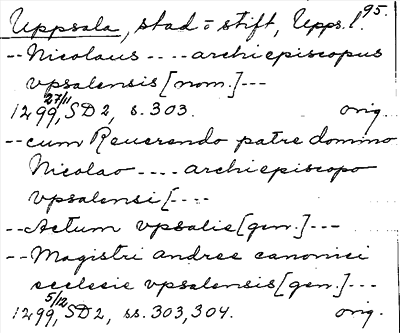 Uppsala, stad o stift, Upps.l. 95.
-- Nicolaus ---- archiepiscopus
vpsalensis [nom.] ---
1299 27/11, SD 2, s. 303. orig.
-- cum Reuerendo patre domino
Nicolao ---- archiepiscopo
vpsalensi [----
-- Actum vpsalie [gen.] ---
-- Magistri andree canonici
ecclesie vpsalensis [gen.] ---
1299 5/12, SD 2, ss. 303, 304. orig.